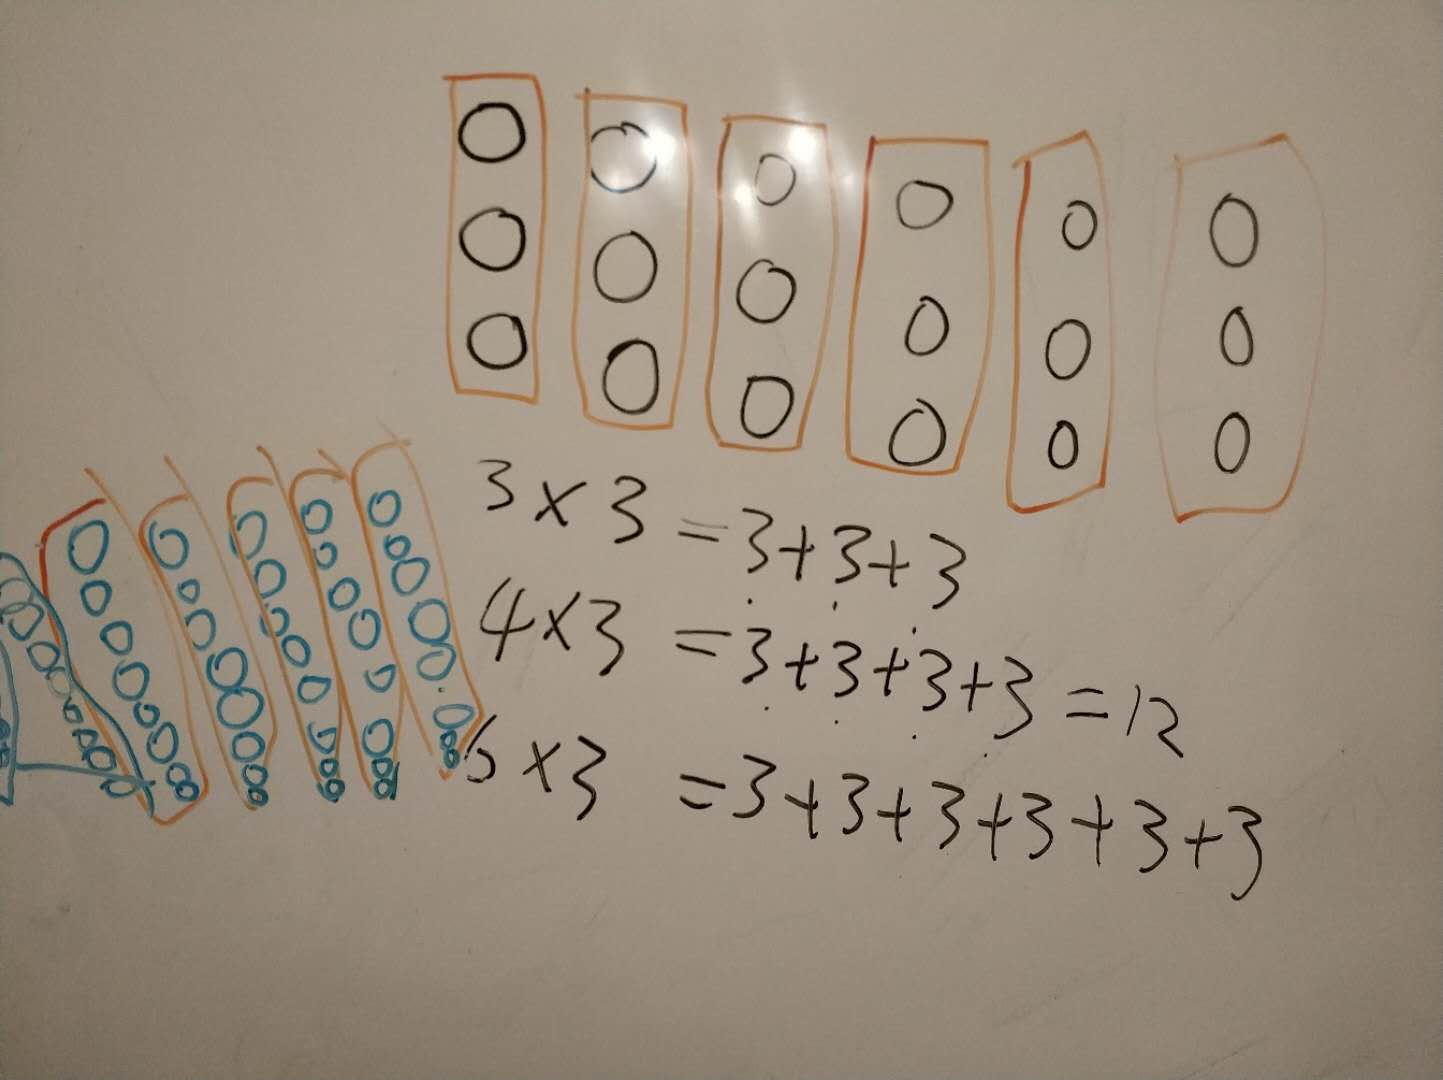 3 × 3 = 3+3+3
4 × 3 = 3+3+3+3 = 12
6 × 3 = 3+3+3+3+3+3